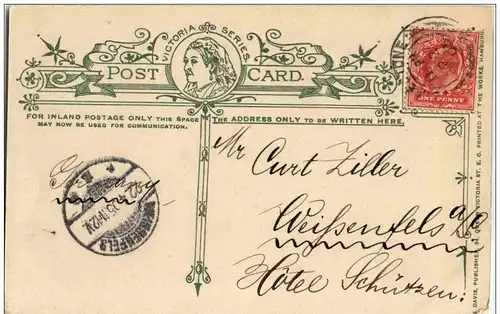 VICTORIA SERIES.
POST CARD.
FOR INLAND POSTAGE ONLY THIS SPACE
MAY NOW BE USED FOR COMMUNICATION.
THE ADDRESS ONLY TO BE WRITTEN HERE.
ONE PENNY
Germany
Mr Curt Ziller
Weißenfels a/S.
Hôtel Schützen:
WEISSENFELS
DAVIS, PUBLISHER, QUEEN VICTORIA ST. E.C. PRINTED AT THE WORKS, HAMBURG.